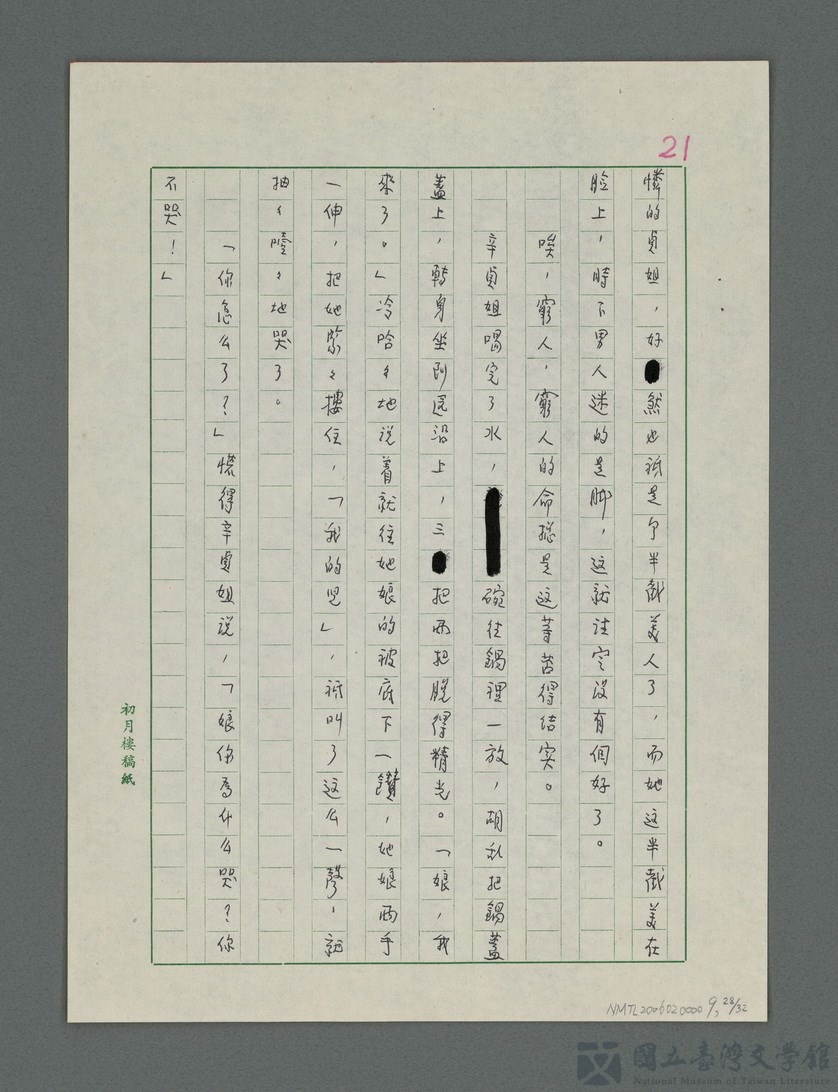 21
憐的貞姐，好然也祇是个半截美人了，而她这半截美在
脸上，時下男人迷的是脚，这就注定没有個好了。
唉，窮人，窮人的命總是这荨苦得结实。
辛貞姐喝完了水，碗往鍋裡一放，胡乱把鍋蓋
蓋上，轉身坐到炕沿上，三把两把脱得精光。「娘，我
來了。」冷哈々地说着就往她娘的被底下一鑽，她娘两手
一伸，把她緊々摟住，「我的児」，祇叫了这么一聲，就
抽々噎々地哭了。
「你怎么了？」慌得辛貞姐说，「娘你為什么哭？你
不哭！」
初月樓稿紙
NMTL2006020000 9, 28/32
國立臺灣文學館
National Museum of Taiwan Literature